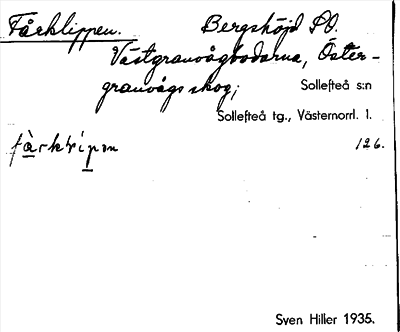 Fårklippen. Bergshöjd SO.
Västgranvågbodarna, Öster-
granvågs skog;
Sollefteå s:n
Sollefteå tg., Västernorrl. l.
126.
Sven Hiller 1935.